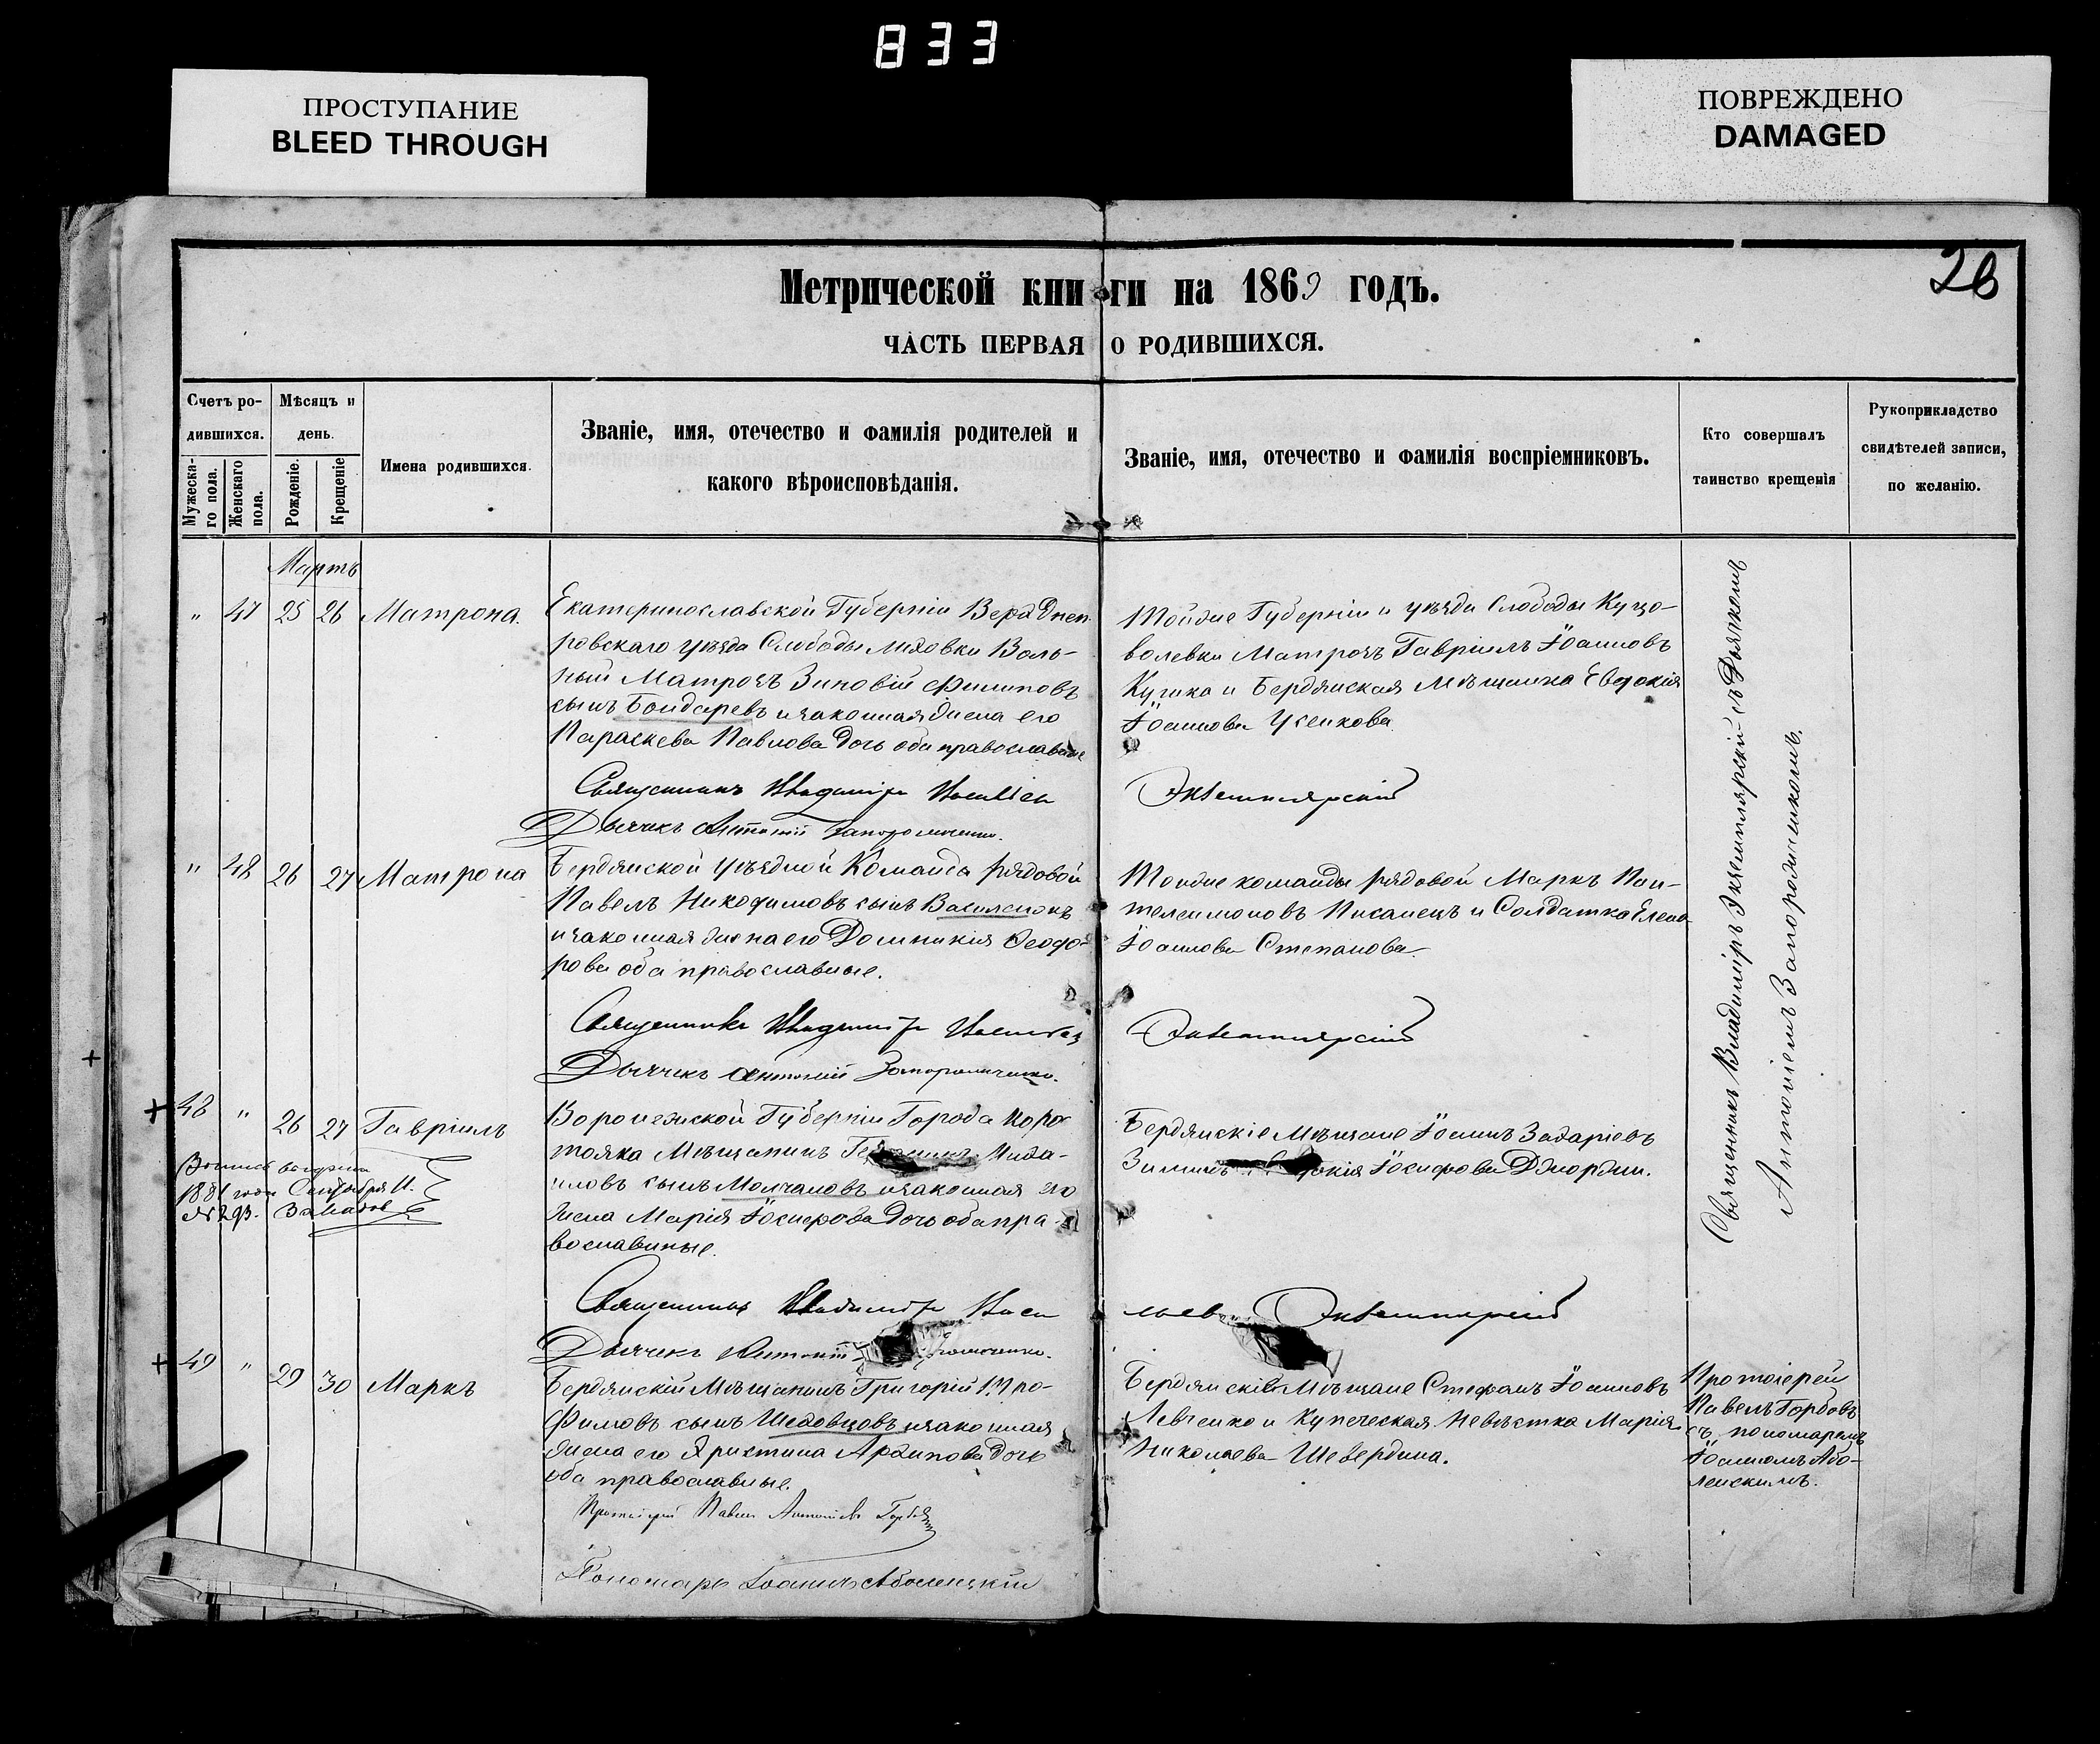 833
ПРОСТУПАНИЕ
BLEED THROUGH
ПОВРЕЖДЕНО
DAMAGED
26
Метрической книги на 1869 годъ.
ЧАСТЬ ПЕРВАЯ О РОДИВШИХСЯ.
Счетъ ро-
дившихся.
Мужеска-
го пола.
Женскаго
пола.
Мѣсяцъ и
день.
Рожденіе.
Крещеніе
Имена родившихся.
Званіе, имя, отечество и фамилія родителей и
какого вѣроисповѣданія.
Званіе, имя, отечество и фамилія воспріемниковъ.
Кто совершалъ
таинство крещенія
Рукоприкладство
свидѣтелей записи,
по желанію.
Мартъ
" 47 25 26 Матрона.
Екатеринославской Губерніи Верхднеп
ровскаго уѣзда Слободы Лиховки Воль-
ный Матрозъ Зиновій Филиповъ
сынъ Бондаревъ и законная жена его
Параскева Павлова дочь оба православные
Тойже Губерніи и уѣзда Слободы Куцо-
волевки Матрозъ Гавріилъ Іоанновъ
и Бердянская Мѣщанка Евдокія
Іоаннова Усенкова.
Священникъ Владиміръ
Экземплярскій
Дьячекъ Антоній
" 48 26 27 Матрона
Бердянской уѣздной Команды рядовой
Павелъ Никодимовъ сынъ Василенокъ
и законная жена его Домникія Ѳеодо-
рова оба православные.
Тойже команды рядовой Маркъ Пан-
телеимоновъ Писанецъ и Солдатка Елена
Іоаннова Степанова.
Священникъ Владиміръ
Экземплярскій
Дьячекъ Антоній
48 " 26 27 Гавріилъ
1881 года Сентября 11.
№ 293.
Воронежской Губерніи Города Коро
тояка Мѣщанинъ Миха-
иловъ сынъ Молчановъ и законная его
жена Марія Іосифова дочь оба пра-
вославные.
Бердянскіе Мѣщане Іоаннъ Захаріевъ
Зиминъ Іосифова
Священникъ Владиміръ Васи
льевъ Экземплярскій
Дьячекъ Антоній
Священникъ Владиміръ Экземплярскій съ Дьячкомъ
Антоніемъ Запорожченкомъ.
49 " 29 30 Маркъ
Бердянскій Мѣщанинъ Григорій Тро-
фимовъ сынъ Шеховцовъ и законная
жена его Христина Архипова дочь
оба православные.
Бердянскіе Мѣщане Стефанъ Іоанновъ
Левченко и Купеческая невѣстка Марія
Николаева Шевердина.
Протоіерей
Павелъ Горбовъ
съ пономаремъ
Іоанномъ Або-
ленскимъ.
Протоіерей Павелъ
Пономарь Іоаннъ Аболенскій